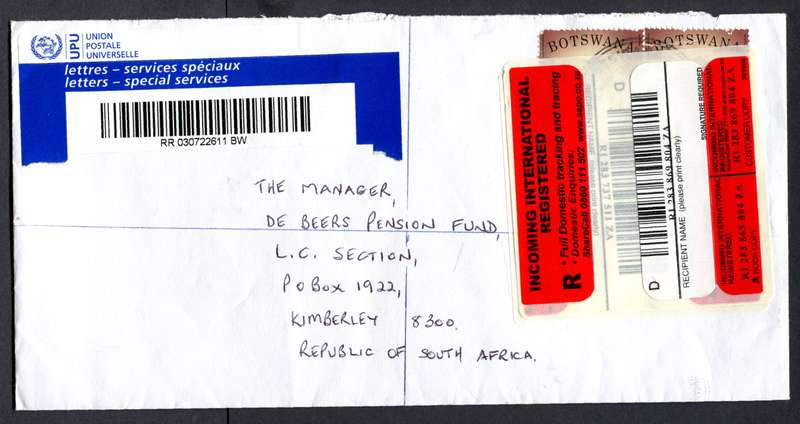 UPU
UNION
POSTALE
UNIVERSELLE
lettres – services spéciaux
letters – special services
RR 030722611 BW
BOTSWANA
BOTSWANA
THE MANAGER,
DE BEERS PENSION FUND,
L.C. SECTION,
PO BOX 1922,
KIMBERLEY 8300.
REPUBLIC OF SOUTH AFRICA.
INCOMING INTERNATIONAL
REGISTERED
R
* Full Domestic tracking and tracing
* Domestic Enquiries:
ShareCall 0860 111 502 www.sapo.co.za
D
RECIPIENT NAME (please print clearly)
R1 283 737 511 ZA
D
R1 283 869 804 ZA
RECIPIENT NAME (please print clearly)
SIGNATURE REQUIRED
INCOMING INTERNATIONAL
REGISTERED
R1 283 869 804 ZA
CUSTOMER COPY
INCOMING INTERNATIONAL
REGISTERED
R1 283 869 804 ZA
A BOOK COPY